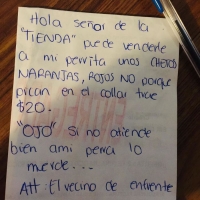 Hola señor de la
"TIENDA" puede venderle
a mi perrita unos CHETOS
NARANJAS, ROJOS NO porque
pican en el collar trae
$20.
"OJO" si no atiende
bien ami perra lo
merde...
Att: El vecino de enfrente